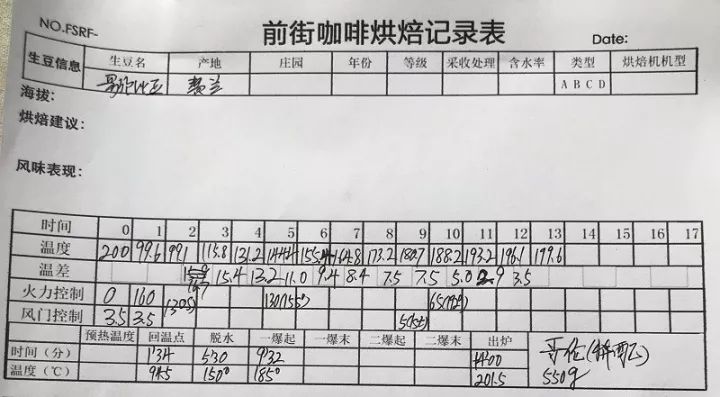 NO.FSRF-
前街咖啡烘焙记录表
Date:
生豆信息 生豆名 产地 庄园 年份 等级 采收处理 含水率 类型 烘焙机机型
哥伦比亚 A B C D
海拔:
烘焙建议:
风味表现:
时间 0 1 2 3 4 5 6 7 8 9 10 11 12 13 14 15 16 17
温度 200 99.6 99.1 115.8 131.2 144.2 155.4 164.8 173.2 180.7 188.2 193.2 196.1 199.6
温差 15.4 13.2 11.0 9.4 8.4 7.5 7.5 5.0 2.9 3.5
火力控制 0 160 130(150°)
风门控制 3.5 3.5
预热温度 回温点 脱水 一爆起 一爆末 二爆起 二爆末 出炉
时间(分) 1'34 5'30 9'32
温度(℃) 94.5 150° 185° 201.5
550g